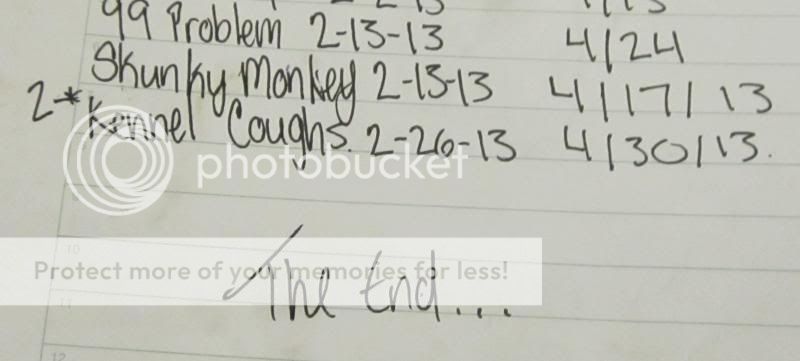 99 Problem 2-13-13 4/24
Skunky Monkey 2-13-13 4/17/13
2-* Kennel Coughs. 2-26-13 4/30/13.
photobucket
10
Protect more of your memories for less!
The End...
11
12